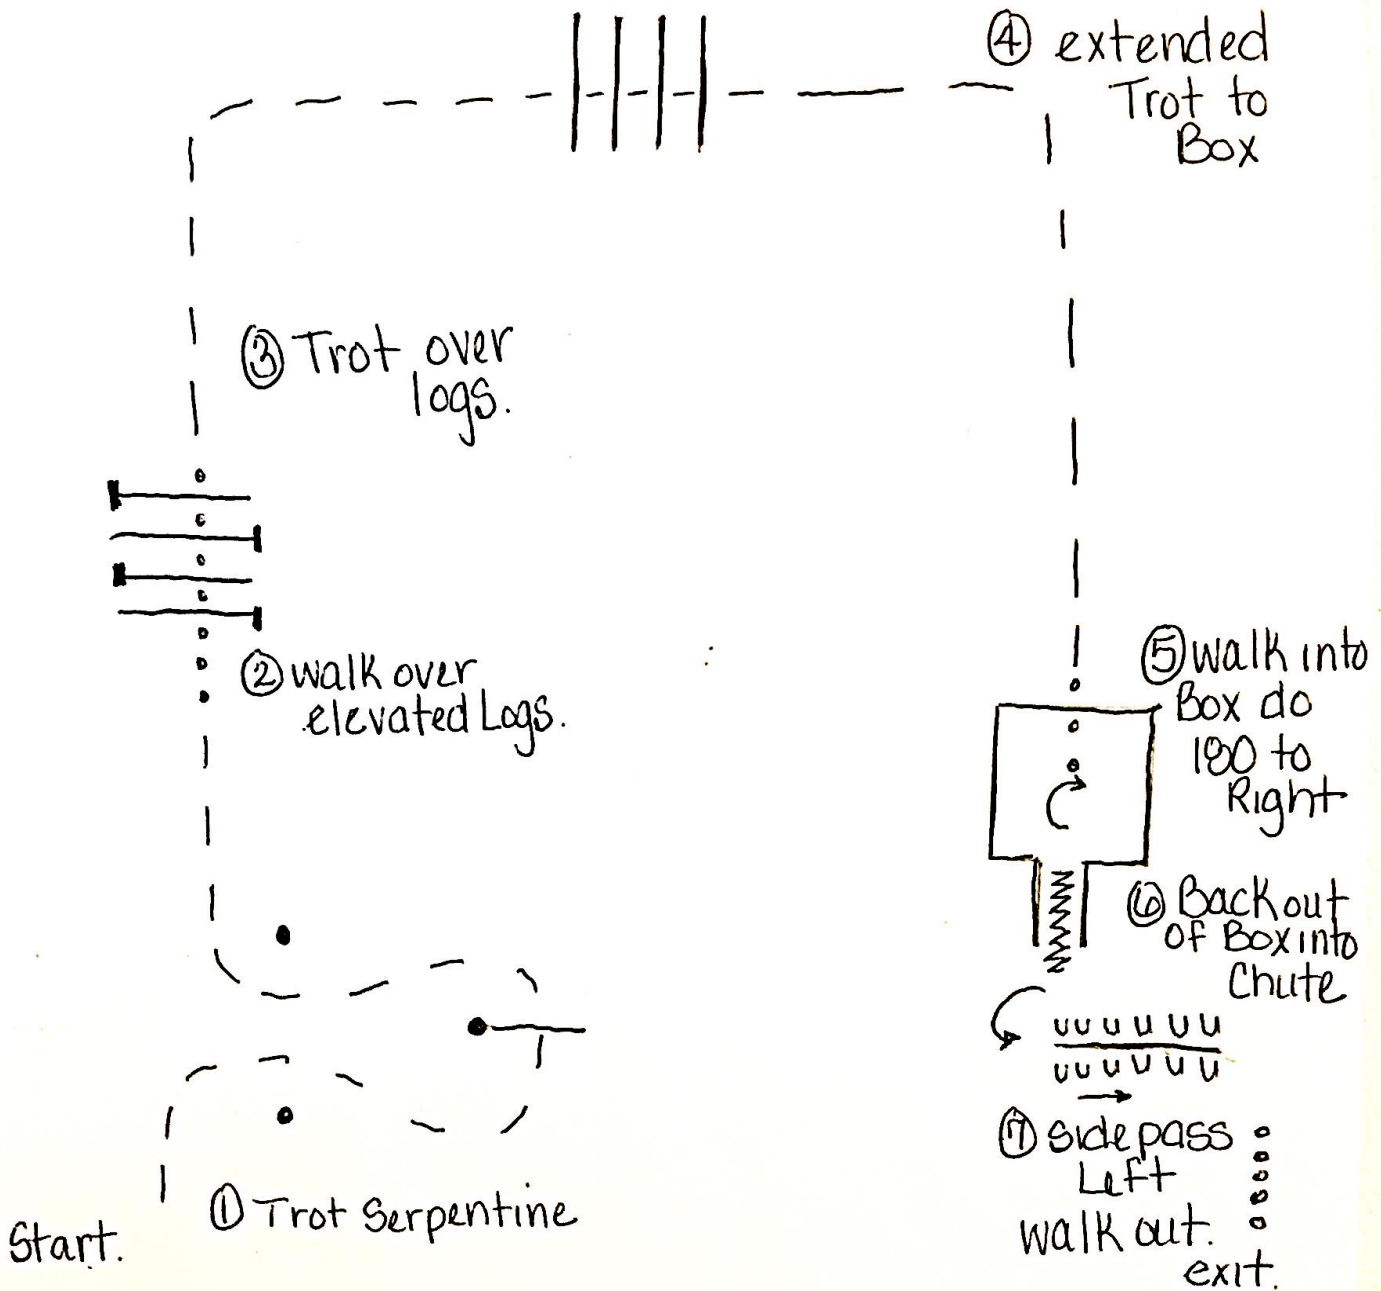 ④ extended
Trot to
Box
③ Trot over
logs.
② walk over
elevated Logs.
⑤ walk into
Box do
180 to
Right
⑥ Back out
of Box into
Chute
⑦ sidepass
Left
walk out.
exit.
① Trot Serpentine
Start.